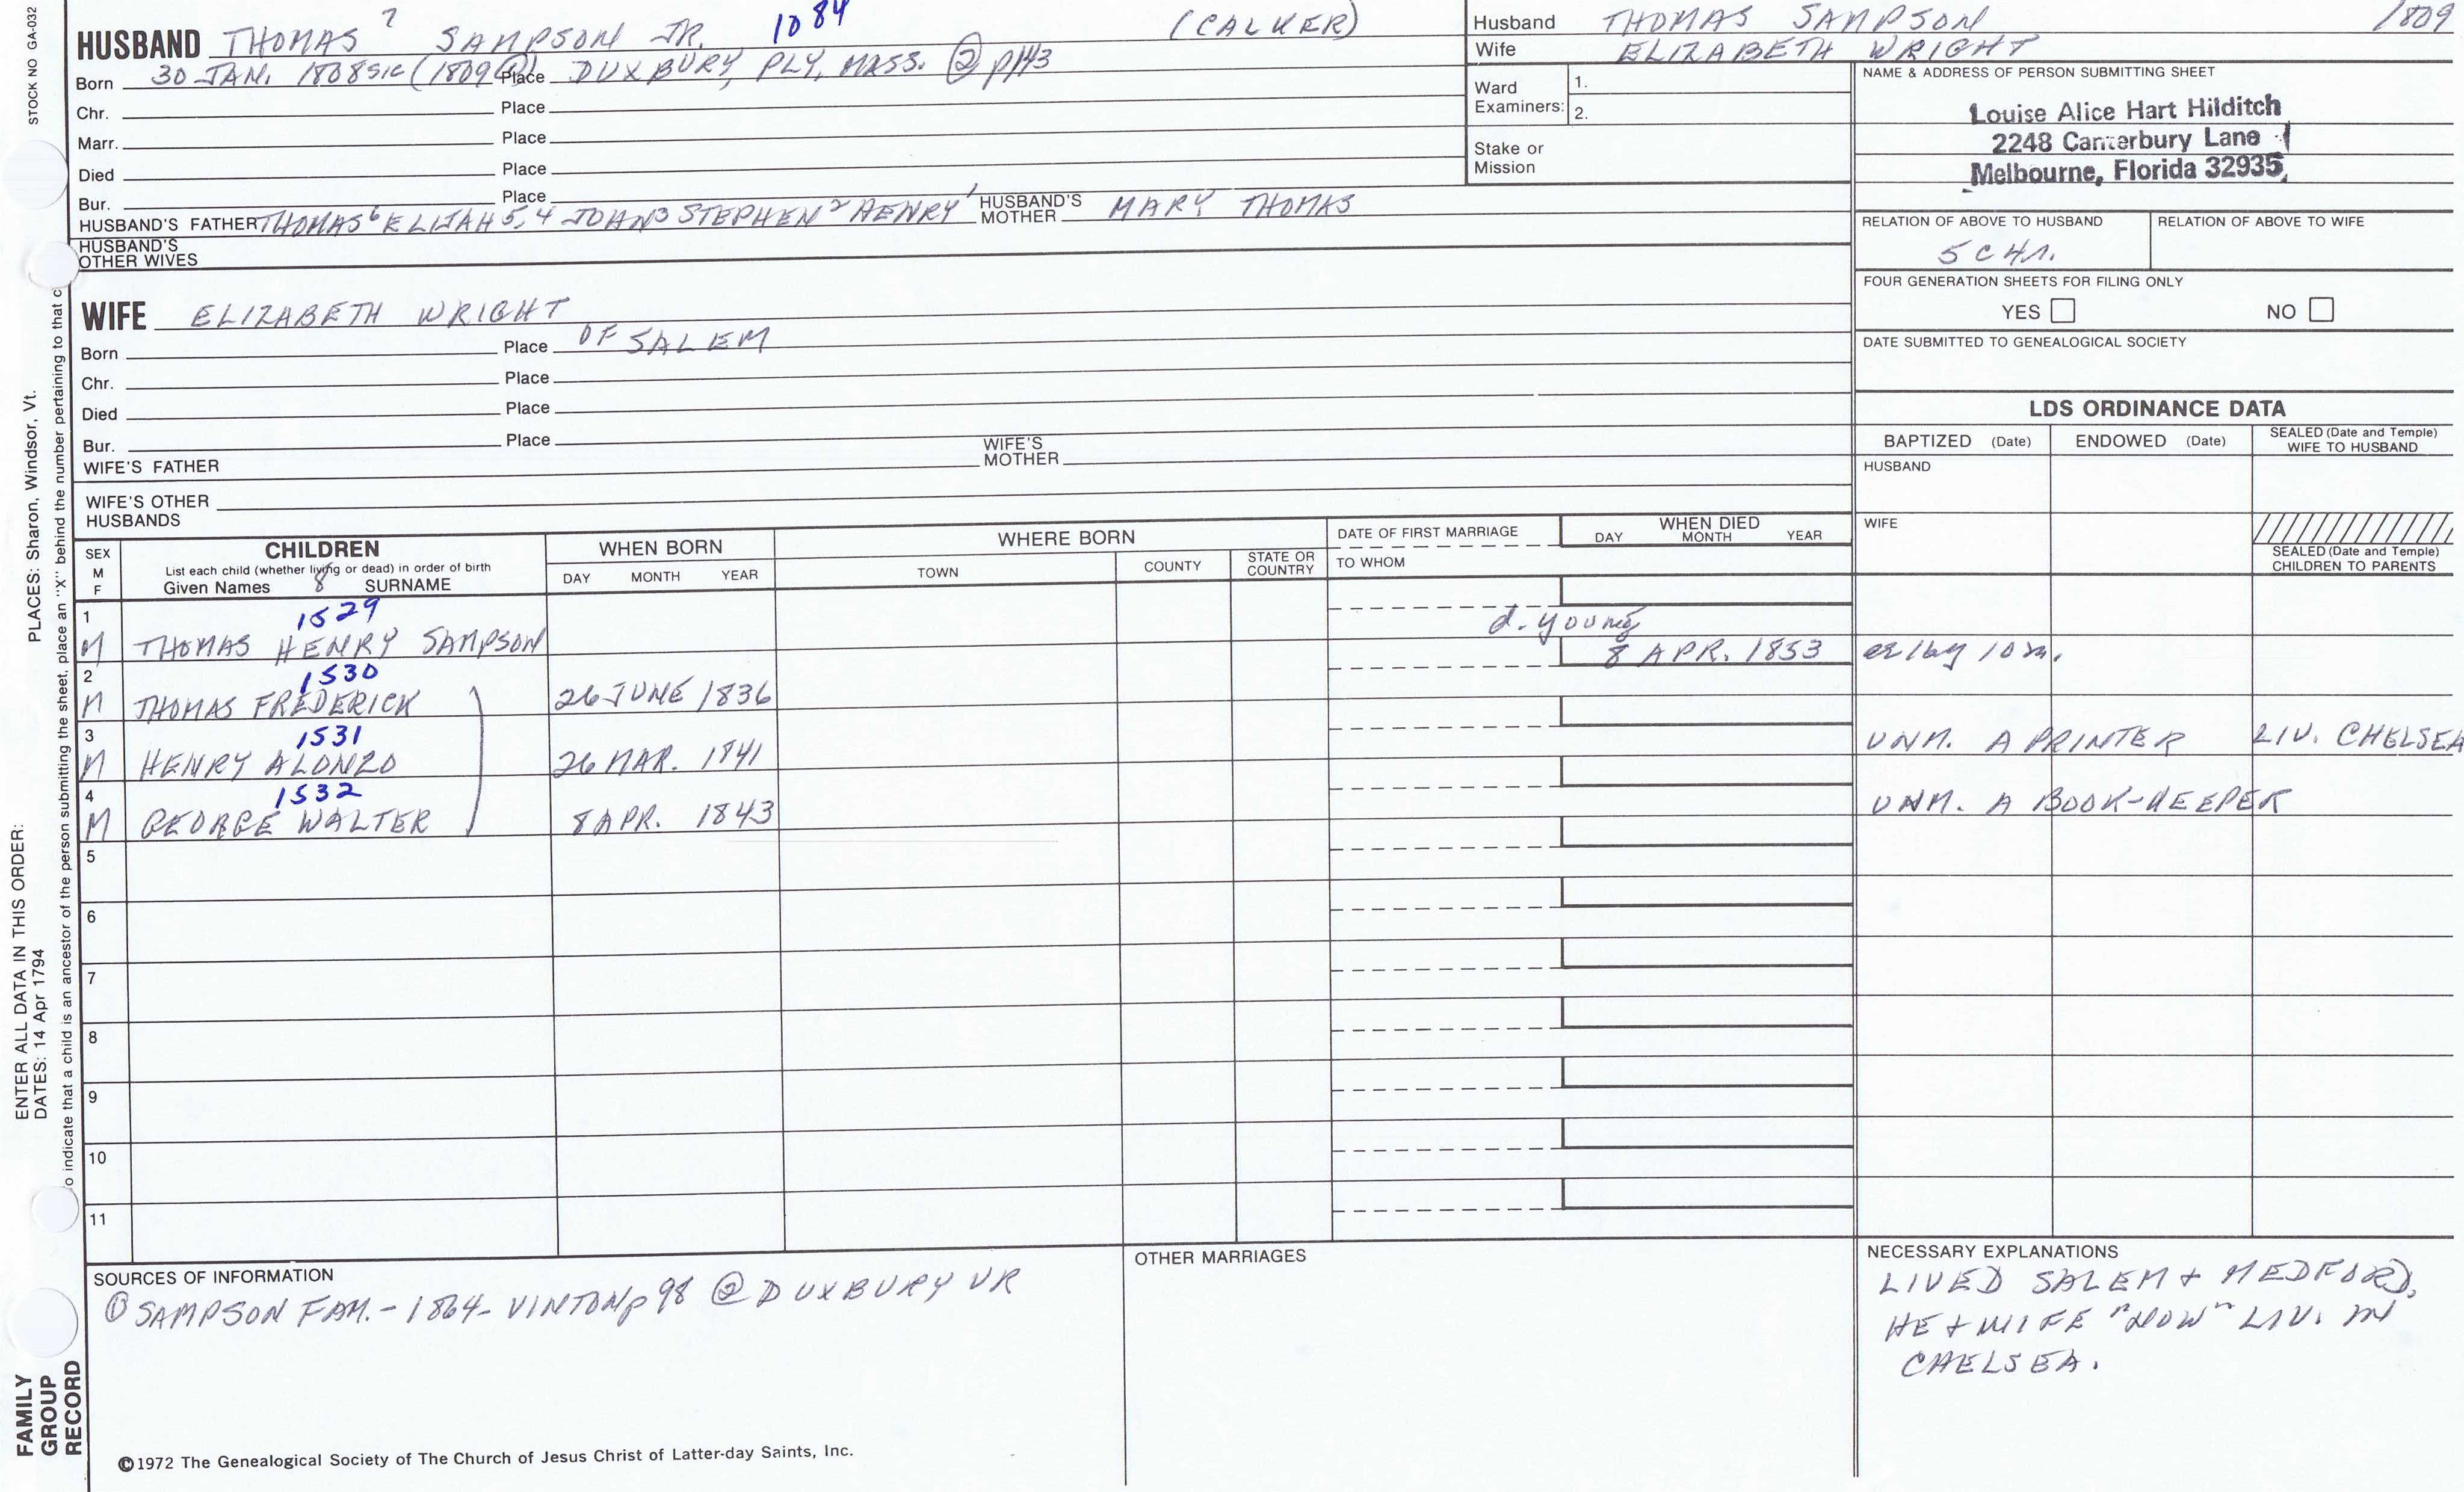 STOCK NO GA-032
PLACES: Sharon, Windsor, Vt.
ENTER ALL DATA IN THIS ORDER:
DATES: 14 Apr 1794
o indicate that a child is an ancestor of the person submitting the sheet, place an "X" behind the number pertaining to that c
FAMILY
GROUP
RECORD
HUSBAND THOMAS 7 SAMPSON JR. 1084 (CALKER)
Born 30 JAN. 1808 SIC (1809 @) Place DUXBURY, PLY, MASS. ② p143
Chr. Place
Marr. Place
Died Place
Bur. Place
HUSBAND'S FATHER THOMAS 6 ELIJAH 5,4 JOHN 3 STEPHEN 2 HENRY 1 HUSBAND'S MOTHER MARY THOMAS
HUSBAND'S
OTHER WIVES
Husband THOMAS SAMPSON 1809
Wife ELIZABETH WRIGHT
Ward
Examiners: 1.
2.
Stake or
Mission
NAME & ADDRESS OF PERSON SUBMITTING SHEET
Louise Alice Hart Hilditch
2248 Canterbury Lane
Melbourne, Florida 32935
RELATION OF ABOVE TO HUSBAND RELATION OF ABOVE TO WIFE
5C4r.
FOUR GENERATION SHEETS FOR FILING ONLY
YES NO
DATE SUBMITTED TO GENEALOGICAL SOCIETY
WIFE ELIZABETH WRIGHT
Born Place OF SALEM
Chr. Place
Died Place
Bur. Place
WIFE'S FATHER WIFE'S MOTHER
WIFE'S OTHER
HUSBANDS
LDS ORDINANCE DATA
BAPTIZED (Date) ENDOWED (Date) SEALED (Date and Temple) WIFE TO HUSBAND
HUSBAND
WIFE
SEALED (Date and Temple)
CHILDREN TO PARENTS
SEX
M
F
CHILDREN
List each child (whether living or dead) in order of birth
Given Names 8 SURNAME
WHEN BORN
DAY MONTH YEAR
WHERE BORN
TOWN COUNTY STATE OR COUNTRY
DATE OF FIRST MARRIAGE
TO WHOM
WHEN DIED
DAY MONTH YEAR
1 1529 d. young
M THOMAS HENRY SAMPSON 8 APR. 1853 10 m.
2 1530
M THOMAS FREDERICK 26 JUNE 1836
3 1531 UNM. A PRINTER LIV. CHELSEA
M HENRY ALONZO 26 MAR. 1841
4 1532 UNM. A BOOK-KEEPER
M GEORGE WALTER 8 APR. 1843
5
6
7
8
9
10
11
SOURCES OF INFORMATION
① SAMPSON FAM. - 1864 - VINTON p98 ② DUXBURY VR
OTHER MARRIAGES
NECESSARY EXPLANATIONS
LIVED SALEM + MEDFORD,
HE + WIFE "NOW" LIV. IN
CHELSEA.
©1972 The Genealogical Society of The Church of Jesus Christ of Latter-day Saints, Inc.